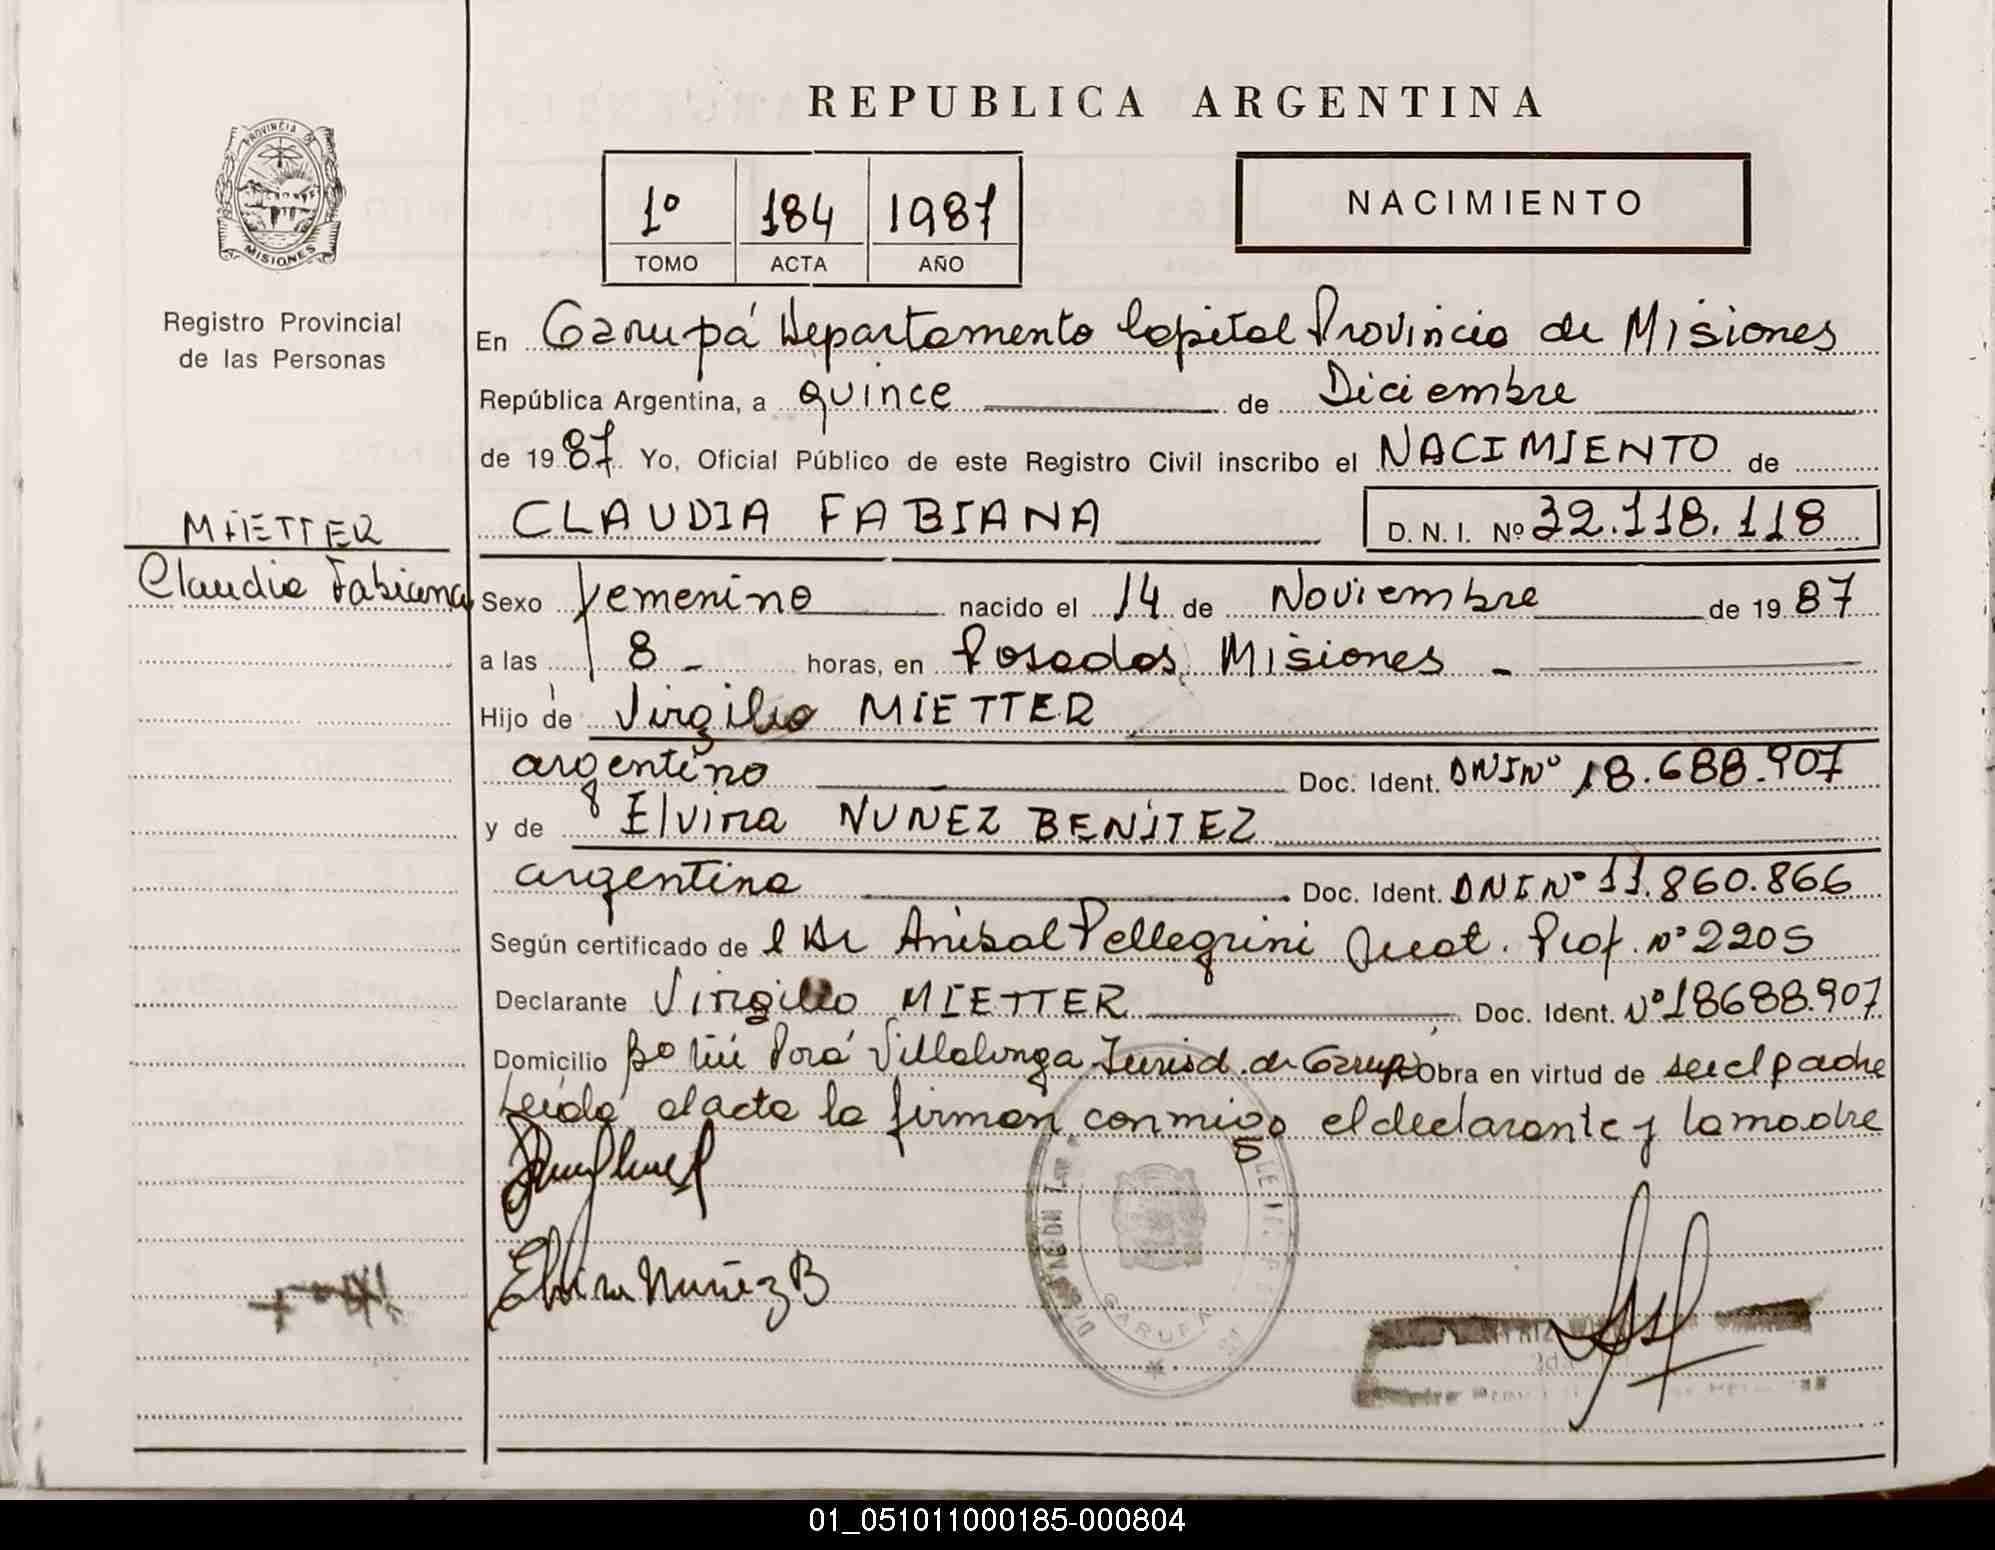 REPUBLICA ARGENTINA
PROVINCIA DE
MISIONES
Registro Provincial
de las Personas
1º 184 1987
TOMO ACTA AÑO
NACIMIENTO
En Garupá Departamento Capital Provincia de Misiones
República Argentina, a quince de Diciembre
de 1987 Yo, Oficial Público de este Registro Civil inscribo el NACIMIENTO de
MIETTER
Claudia Fabiana
CLAUDIA FABIANA D. N. I. Nº 32.118.118
Sexo femenino nacido el 14 de Noviembre de 1987
a las 8 - horas, en Posadas Misiones -
Hijo de Virgilio MIETTER
argentino Doc. Ident. DNI Nº 18.688.907
y de Elvira NUÑEZ BENITEZ
argentina Doc. Ident. DNI Nº 11.860.866
Según certificado de l Dr Anibal Pellegrini Mat. Prof. Nº 2205
Declarante Virgilio MIETTER Doc. Ident. Nº 18688.907
Domicilio Bº Porá Villalonga Jurisd. de Garupá Obra en virtud de ser el padre
Leida el acta la firman conmigo el declarante y la madre
Elvira Nuñez B
GARUPA
01_051011000185-000804